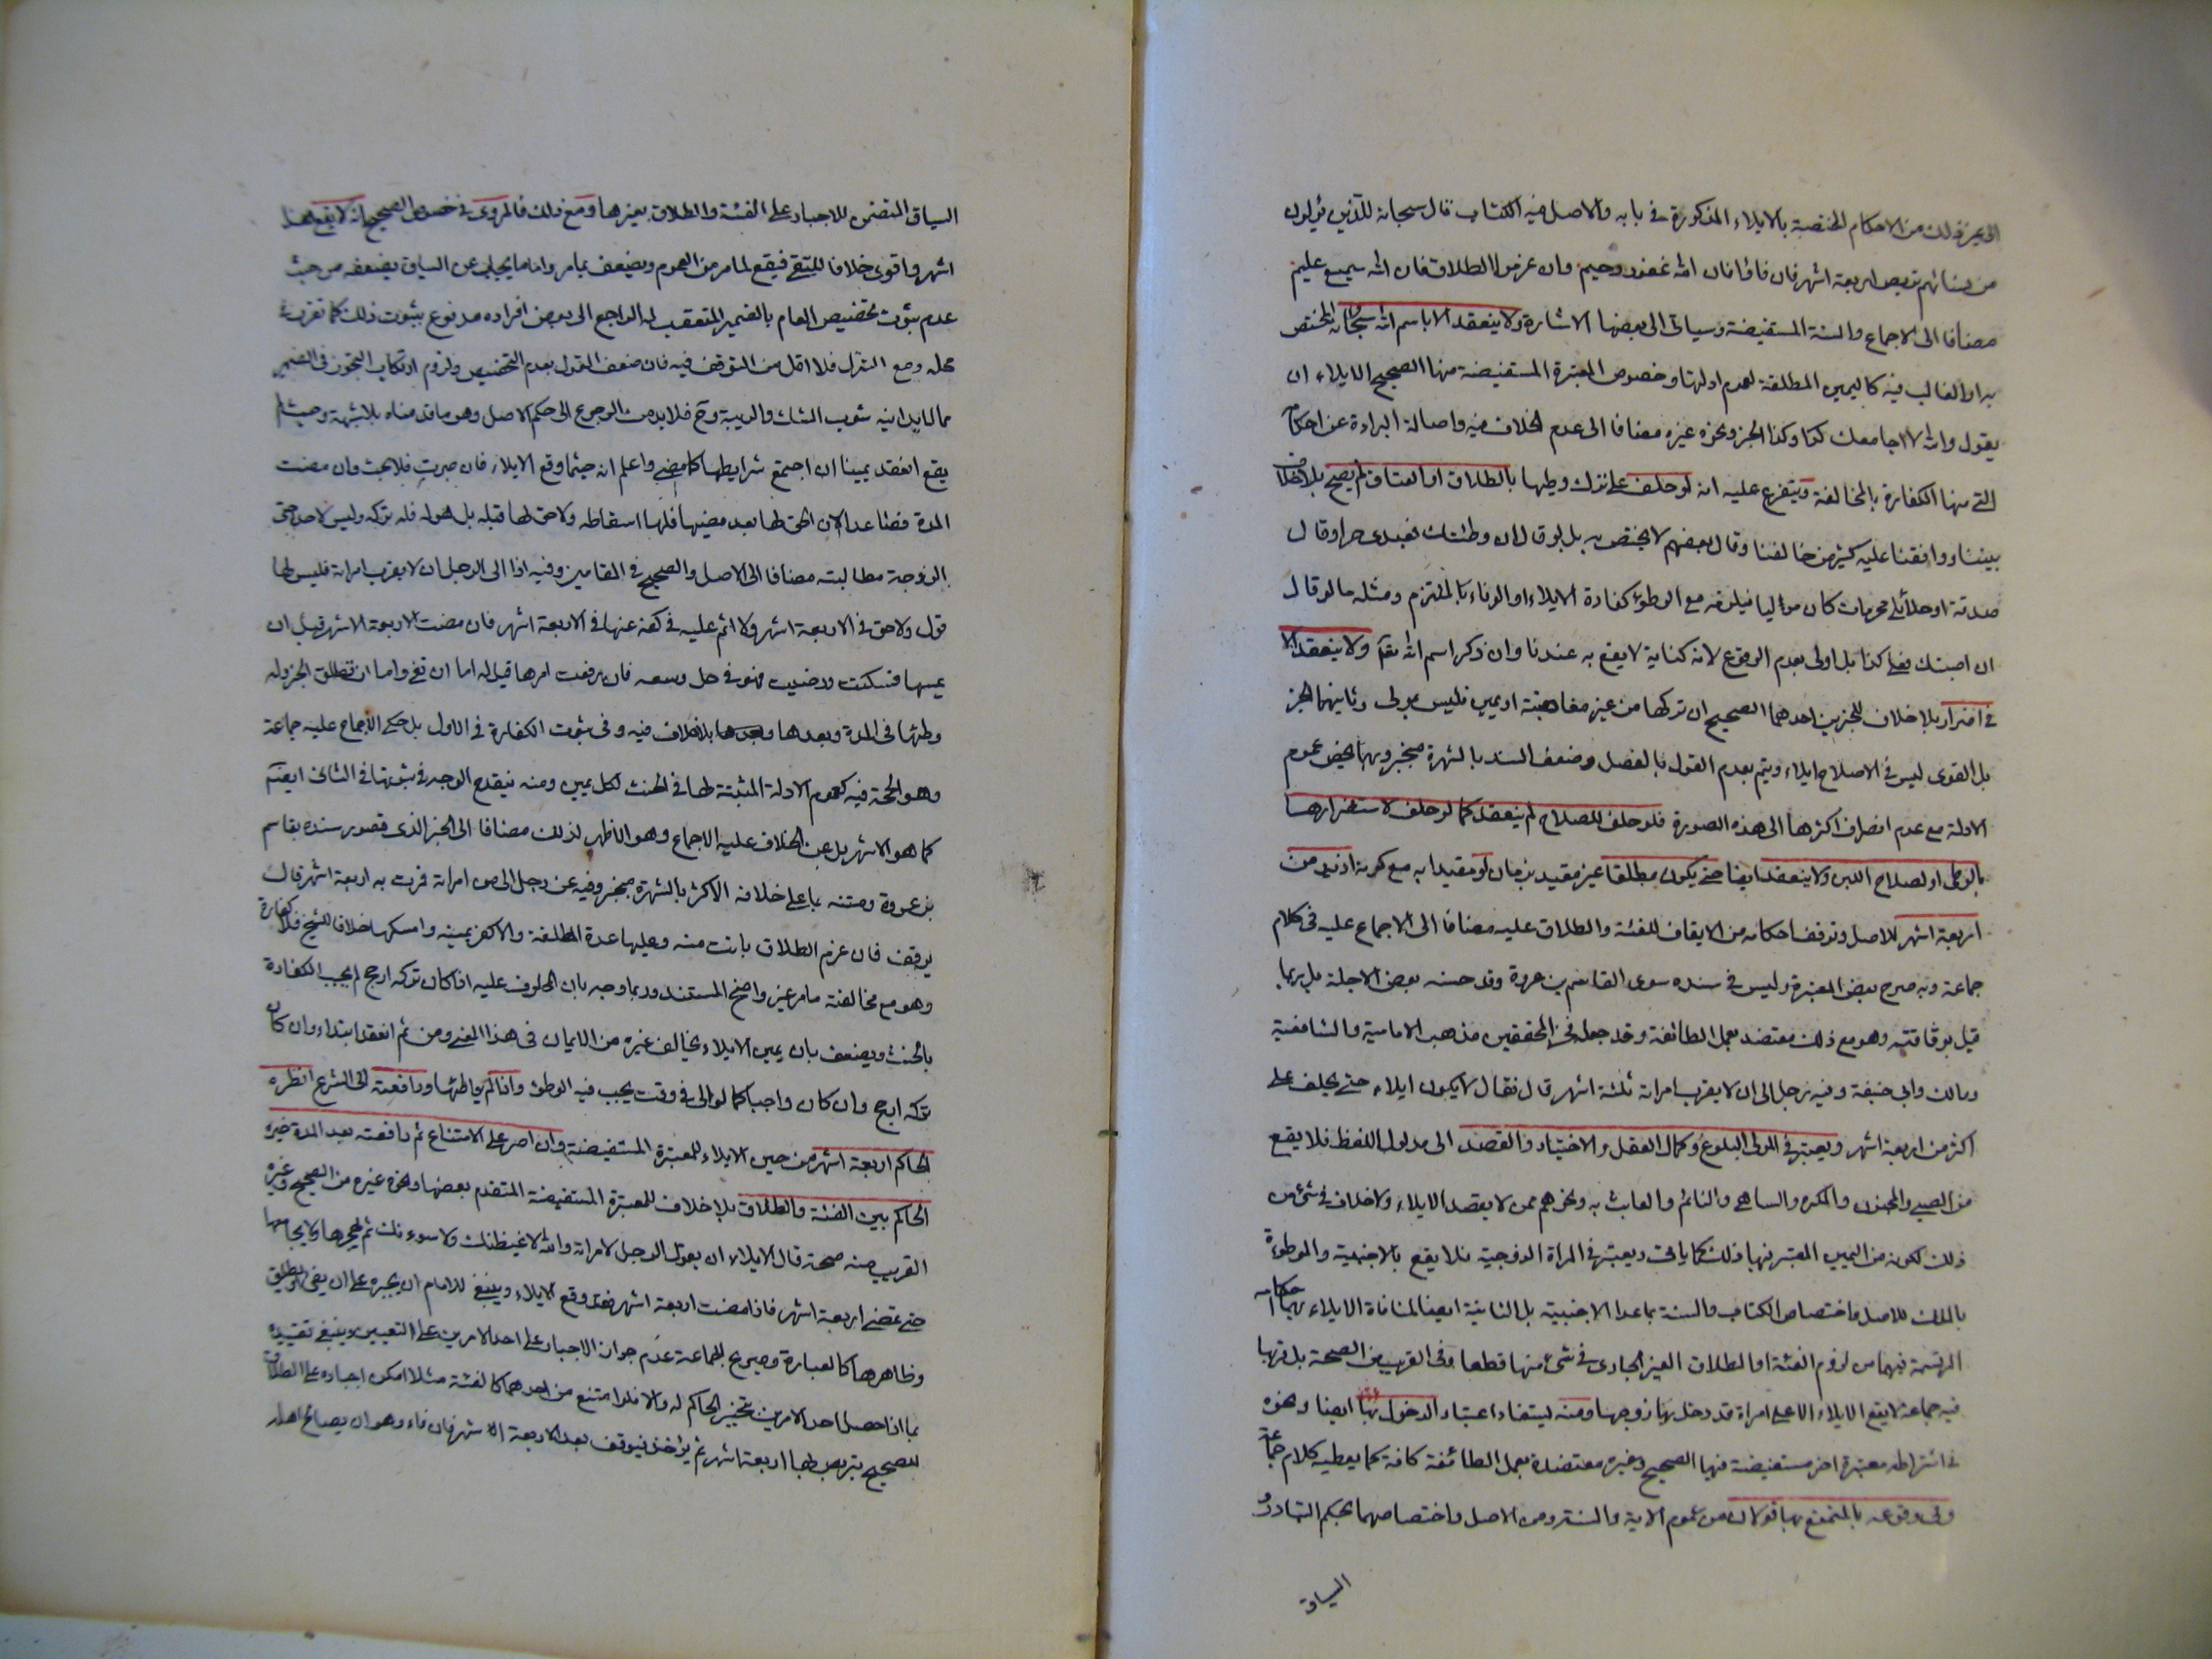 الى غير ذلك من الاحكام المختصة بالايلاء المذكورة في بابه والاصل فيه الكتاب قال سبحانه للذين يؤلون
من نسائهم تربص اربعة اشهر فان فاؤا فان الله غفور رحيم وان عزموا الطلاق فان الله سميع عليم
مضافا الى الاجماع والسنة المستفيضة وسيأتى الى بعضها الاشارة ولا ينعقد الا باسم الله سبحانه المختص
به او الغالب فيه كاليمين المطلقة لعموم ادلتها وخصوص المعتبرة المستفيضة منها الصحيح الايلاء ان
يقول والله لا اجامعك كذا وكذا الخبر ونحوه غيره مضافا الى عدم الخلاف فيه واصالة البراءة عن احكامه
التى منها الكفارة بالمخالفة ويتفرع عليه انه لو حلف على ترك وطيها بالطلاق او العتاق لم يصح بلا خلاف
بيننا ووافقنا عليه كثير من خالفنا وقال بعضهم لا يختص به بل لو قال ان وطئتك فعبدى حر او قال
صدقة او حلائلى محرمات كان موليا فيلزمه مع الوطؤ كفارة الايلاء او الوفاء بالملتزم ومثله ما لو قال
ان اصبتك فعلى كذا بل اولى بعدم الوقوع لانه كناية لا يقع به عندنا وان ذكر اسم الله تعالى ولا ينعقد الا
في اضرار بلا خلاف للخبرين احدهما الصحيح ان تركها من غير مغاضبة او يمين فليس بمولى وثانيهما الخبر
بل القوى ليس في الاصلاح ايلاء ويتم بعدم القول بالفصل وضعف السند بالشهرة منجبر وبهما يخص عموم
الادلة مع عدم انصراف اكثرها الى هذه الصورة فلو حلف للصلاح لم ينعقد كما لو حلف لاستضرارها
بالوطى او لصلاح اللبن ولا ينعقد ايضا حتى يكون مطلقا غير مقيد بزمان او مقيدا به مع كونه ازيد من
اربعة اشهر للاصل وتوقف احكامه من الايقاف للفئة والطلاق عليه مضافا الى الاجماع عليه في كلام
جماعة وبه صرح بعض المعتبرة وليس في سنده سوى القاسم بن عروة وقد حسنه بعض الاجلة بل ربما
قيل بوثاقته وهو مع ذلك معتضد بعمل الطائفة وقد جعله فخر المحققين مذهب الامامية والشافعية
ومالك وابي حنيفة وفيه رجل الى ان لا يقرب امراته ثلثة اشهر قال فقال لا يكون ايلاء حتى يحلف على
اكثر من اربعة اشهر ويعتبر في المولى البلوغ وكمال العقل والاختيار والقصد الى مدلول اللفظ فلا يقع
من الصبى والمجنون والمكره والساهى والنائم والعابث به ونحوهم ممن لا يقصد الايلاء ولا خلاف في شئ من
ذلك لكونه من اليمين المعتبر فيها ذلك كما ياتى ويعتبر في المراة الزوجية فلا يقع بالاجنبية والموطوءة
بالملك للاصل واختصاص الكتاب والسنة بما عدا الاجنبية بل الثانية ايضا لمنافاة الايلاء بها احكامه
المرتسمة فيهما من لزوم الفئة او الطلاق الغير الجارى في شئ منها قطعا وفى القريب من الصحة بل قربها
فيه جماعة لا يقع الايلاء الا على امراة قد دخل بها زوجها ومنه يستفاد اعتبار الدخول بها ايضا ونحوه
في اشتراطه معتبرة اخر مستفيضة فيها الصحيح وغيره معتضدة بعمل الطائفة كافة كما يعطيه كلام جماعة
وفى وقوعه بالمتمتع بها قولان من عموم الاية والسنة ومن الاصل واختصاصهما بحكم التبادر و
السياق
السياق المتضمن للاجبار على الفئة والطلاق بغيرها ومع ذلك فالمروى في خصوص الصحيح انه لا يقع وهذا
اشهر واقوى خلافا للمتقى فيقع لما مر من العموم ويضعف بما مر واما ما يجلى عن السياق بضعفه من حيث
عدم ثبوت تخصيص العام بالضمير المتعقب له الراجع الى بعض افراده مدفوع بثبوت ذلك كما تقرر في
محله ومع التنزل فلا اقل من التوقف فيه فان ضعف القول بعدم التخصيص ولزوم ارتكاب التجوز فى الضمير
مما لا يدانيه شوب الشك والريبة وح فلا بد من الرجوع الى حكم الاصل وهو ما قدمناه بلا شبهة وحيث لم
يقع انعقد يمينا ان اجتمع شرايطها كما مضى واعلم انه حيثما وقع الايلاء فان صبرت فلا بحث وان مضت
المدة فصاعدا لان الحق لها بعد مضيها فلها اسقاطه ولا حق لها قبله بل هو له فله تركه وليس لاحد حتى
الزوجة مطالبته مضافا الى الاصل والصحيح في المقامين وفيه اذا الى الرجل ان لا يقرب امراته فليس لها
قول ولا حق في الاربعة اشهر ولا اثم عليه في كفه عنها في الاربعة اشهر فان مضت الاربعة الاشهر قبل ان
يمسها فسكتت ورضيت فهو في حل وسعه فان رفعت امرها قيل له اما ان تفئ واما ان تطلق الخبر وله
وطئها في المدة وبعدها بلا خلاف فيه وفى ثبوت الكفارة في الاول بل حكى الاجماع عليه جماعة
وهو الحجة فيه كعموم الادلة المثبتة لها في الحنث لكل يمين ومنه ينقدح الوجه في ثبوتها في الثانى ايضا
كما هو الاشهر بل عن الخلاف عليه الاجماع وهو الاظهر لذلك مضافا الى الخبر الذى قصور سنده بقاسم
بن عروة ومتنه بما على خلافه الاكثر بالشهرة منجبر وفيه عن رجل الى من امراته فمرت به اربعة اشهر قال
يوقف فان عزم الطلاق بانت منه وعليها عدة المطلقة والا كفر يمينه وامسكها خلافا للشيخ فلا كفارة
وهو مع مخالفته ما مر غير واضح المستند وربما وجه بان المحلوف عليه اذا كان تركه ارجح لم يجب الكفارة
بالحنث ويضعف بان يمين الايلاء يخالف غيره من الايمان فى هذا المعنى ومن ثم انعقد ابتداء وان كان
تركه ارجح وان كان واجبا كما لو الى في وقت يجب فيه الوطؤ واذا لم يطاها ورافعته الى الشرع انظره
الحاكم اربعة اشهر من حين الايلاء للمعتبرة المستفيضة وان اصر على الامتناع ثم رافعته بعد المدة خيره
الحاكم بين الفئة والطلاق بلا خلاف للمعتبرة المستفيضة المتقدم بعضها ونحوه غيره من الصحيح وغيره
القريب منه صحة قال الايلاء ان يقول الرجل لامراته والله لاغيظنك ولاسوءنك ثم يهجرها ولا يجامعها
حتى تمضى اربعة اشهر فاذا مضت اربعة اشهر فقد وقع الايلاء وينبغى للامام ان يجبره على ان يفئ او يطلق
وظاهرها كالعبارة وصريح الجماعة عدم جواز الاجبار على احد الامرين على التعيين وينبغى تقييده
بما اذا حصل احد الامرين بتخيير الحاكم له والا فلو امتنع من احدهما كالفئة مثلا امكن اجباره على الطلاق
للصحيح يتربص بها اربعة اشهر ثم يؤخذ فيوقف بعد الاربعة الاشهر فان فاء وهو ان يصالح اهله